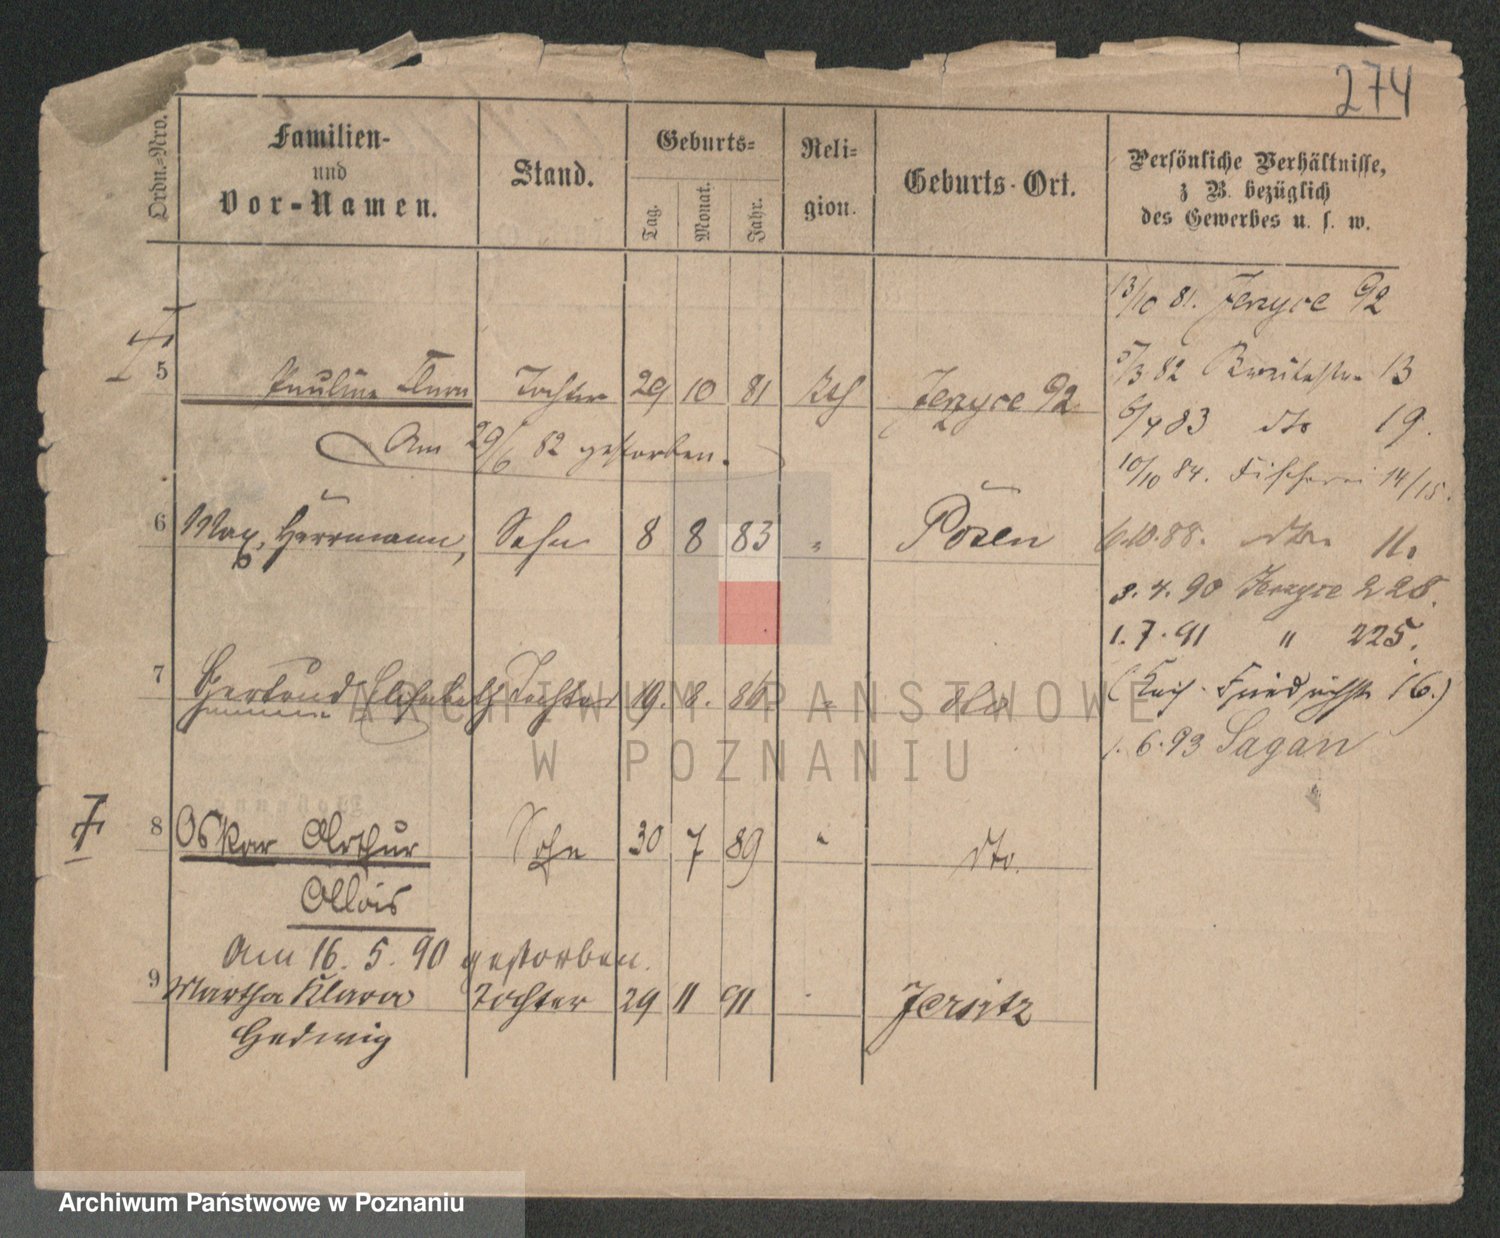 274
Ordn.-Nro.
Familien-
und
Vor-Namen.
Stand.
Geburts-
Tag.
Monat.
Jahr.
Reli-
gion.
Geburts-Ort.
Persönliche Verhältnisse,
z. B. bezüglich
des Gewerbes u. s. w.
13/10 81. Jerzyce 92
5 Pauline Clara Tochter 29 10 81 Kth Jerzyce 92
5/3 82 Breitestr. 13
6/4 83 dto 19.
Am 29/6 82 gestorben.
10/10 84. Fischerei 14/15.
6 Max, Herrmann, Sohn 8 8 83 " Posen
6.10.88. dto. 11.
3.4.90 Jerzyce 228.
1.7.91 " 225.
7 Gertrud Elisabeth Tochter 19. 8. 86 " dto
(Kais. Friedrichstr 16.)
1.6.93 Sagan
8 Oskar Arthur Sohn 30 7 89 " dto.
Alois
Am 16. 5. 90 gestorben.
9 Martha Klara Tochter 29 11 91 Jersitz
Hedwig
ARCHIWUM PAŃSTWOWE
W POZNANIU
Archiwum Państwowe w Poznaniu